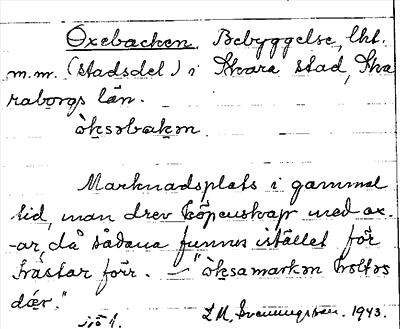 Oxebacken, Bebyggelse,
m.m. (stadsdel) i Skara stad, Ska
raborgs län.
öksəbakən.
Marknadsplats i gammal
tid, man drev köpenskap med ox-
-ar, då sådana funnos istället för
hästar förr. — "öksamarkən
där."
1943.